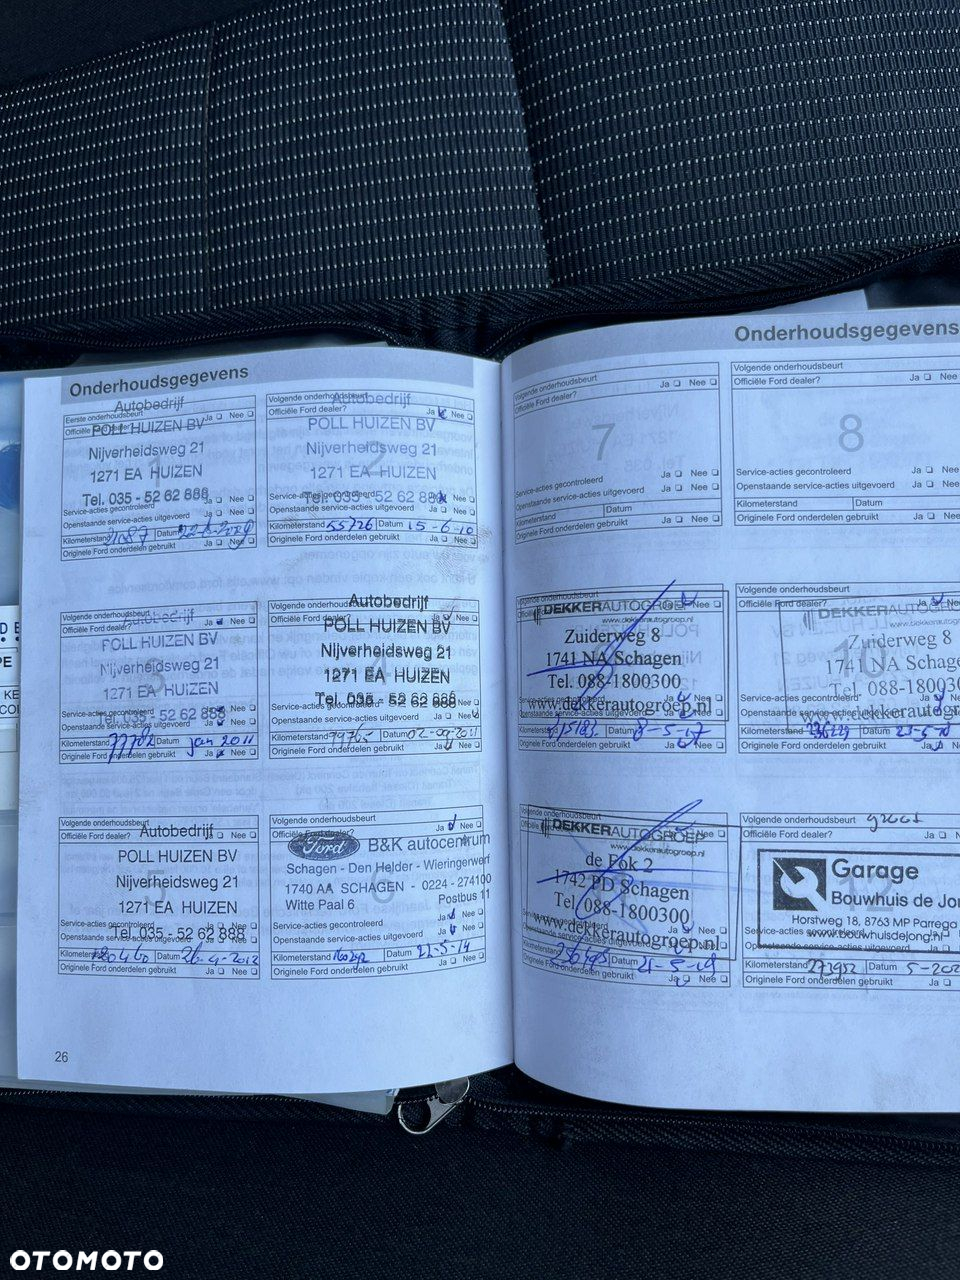 Onderhoudsgegevens
Eerste onderhoudsbeurt
Officiële Ford dealer? Ja Nee
Autobedrijf
POLL HUIZEN BV
Nijverheidsweg 21
1271 EA HUIZEN
Tel. 035 - 52 62 888
1
Service-acties gecontroleerd Ja Nee
Openstaande service-acties uitgevoerd Ja Nee
Kilometerstand Datum
Originele Ford onderdelen gebruikt Ja Nee
Volgende onderhoudsbeurt
Officiële Ford dealer? Ja Nee
Autobedrijf
POLL HUIZEN BV
Nijverheidsweg 21
1271 EA HUIZEN
Tel. 035 - 52 62 888
2
Service-acties gecontroleerd
Openstaande service-acties uitgevoerd Ja Nee
Kilometerstand 55726 Datum 15-6-10
Originele Ford onderdelen gebruikt Ja Nee
Volgende onderhoudsbeurt
Officiële Ford dealer? Ja Nee
Autobedrijf
POLL HUIZEN BV
Nijverheidsweg 21
1271 EA HUIZEN
Tel. 035 - 52 62 888
3
Service-acties gecontroleerd Ja Nee
Openstaande service-acties uitgevoerd Ja Nee
Kilometerstand 77782 Datum jan 2011
Originele Ford onderdelen gebruikt Ja Nee
Volgende onderhoudsbeurt
Officiële Ford dealer? Ja Nee
Autobedrijf
POLL HUIZEN BV
Nijverheidsweg 21
1271 EA HUIZEN
Tel. 035 - 52 62 888
4
Service-acties gecontroleerd Ja Nee
Openstaande service-acties uitgevoerd Ja Nee
Kilometerstand 99765 Datum 02-09-2011
Originele Ford onderdelen gebruikt Ja Nee
Volgende onderhoudsbeurt
Officiële Ford dealer? Ja Nee
Autobedrijf
POLL HUIZEN BV
Nijverheidsweg 21
1271 EA HUIZEN
Tel. 035 - 52 62 888
5
Service-acties gecontroleerd Ja Nee
Openstaande service-acties uitgevoerd Ja Nee
Kilometerstand Datum 26-4-2012
Originele Ford onderdelen gebruikt Ja Nee
Volgende onderhoudsbeurt
Officiële Ford dealer? Ja Nee
Ford B&K autocentrum
Schagen - Den Helder - Wieringerwerf
1740 AA SCHAGEN - 0224 - 274100
Witte Paal 6 Postbus 11
6
Ja Nee
Openstaande service-acties uitgevoerd Ja Nee
Kilometerstand Datum 22-5-14
Originele Ford onderdelen gebruikt Ja Nee
26
Onderhoudsgegevens
Volgende onderhoudsbeurt
Officiële Ford dealer? Ja Nee
7
Service-acties gecontroleerd Ja Nee
Openstaande service-acties uitgevoerd Ja Nee
Kilometerstand Datum
Originele Ford onderdelen gebruikt Ja Nee
Volgende onderhoudsbeurt
Officiële Ford dealer? Ja Nee
8
Service-acties gecontroleerd Ja Nee
Openstaande service-acties uitgevoerd Ja Nee
Kilometerstand Datum
Originele Ford onderdelen gebruikt Ja
Volgende onderhoudsbeurt
Ja Nee
DEKKERAUTOGROEP
www.dekkerautogroep.nl
Zuiderweg 8
1741 NA Schagen
Tel. 088-1800300
www.dekkerautogroep.nl
Kilometerstand Datum 8-5-17
Originele Ford onderdelen gebruikt Ja Nee
Volgende onderhoudsbeurt
Officiële Ford dealer? Ja Nee
DEKKERAUTOGROEP
www.dekkerautogroep.nl
Zuiderweg 8
1741 NA Schagen
Tel. 088-1800300
www.dekkerautogroep
10
Service-acties gecontroleerd Ja
Openstaande service-acties uitgevoerd Ja
Kilometerstand Datum
Originele Ford onderdelen gebruikt Ja Nee
Volgende onderhoudsbeurt
DEKKERAUTOGROEP
www.dekkerautogroep.nl
de Fok 2
1742 PD Schagen
Tel. 088-1800300
www.dekkerautogroep.nl
Kilometerstand Datum 21-5-19
Originele Ford onderdelen gebruikt Ja Nee
Volgende onderhoudsbeurt groot
Officiële Ford dealer? Ja Nee
Garage
Bouwhuis de Jon
Horstweg 18, 8763 MP Parrega
www.bouwhuisdejong.nl
12
Openstaande service-acties uitgevoerd Ja
Kilometerstand 273952 Datum 5-202
Originele Ford onderdelen gebruikt Ja
OTOMOTO